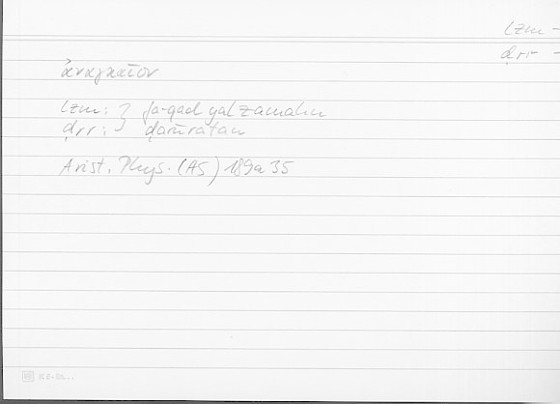 lzm -
ḍrr -
ἀναγκαῖον
lzm: } fa-qad yalzamuhu
ḍrr: } ḍarūratan
Arist. Phys. (AS) 189a 35